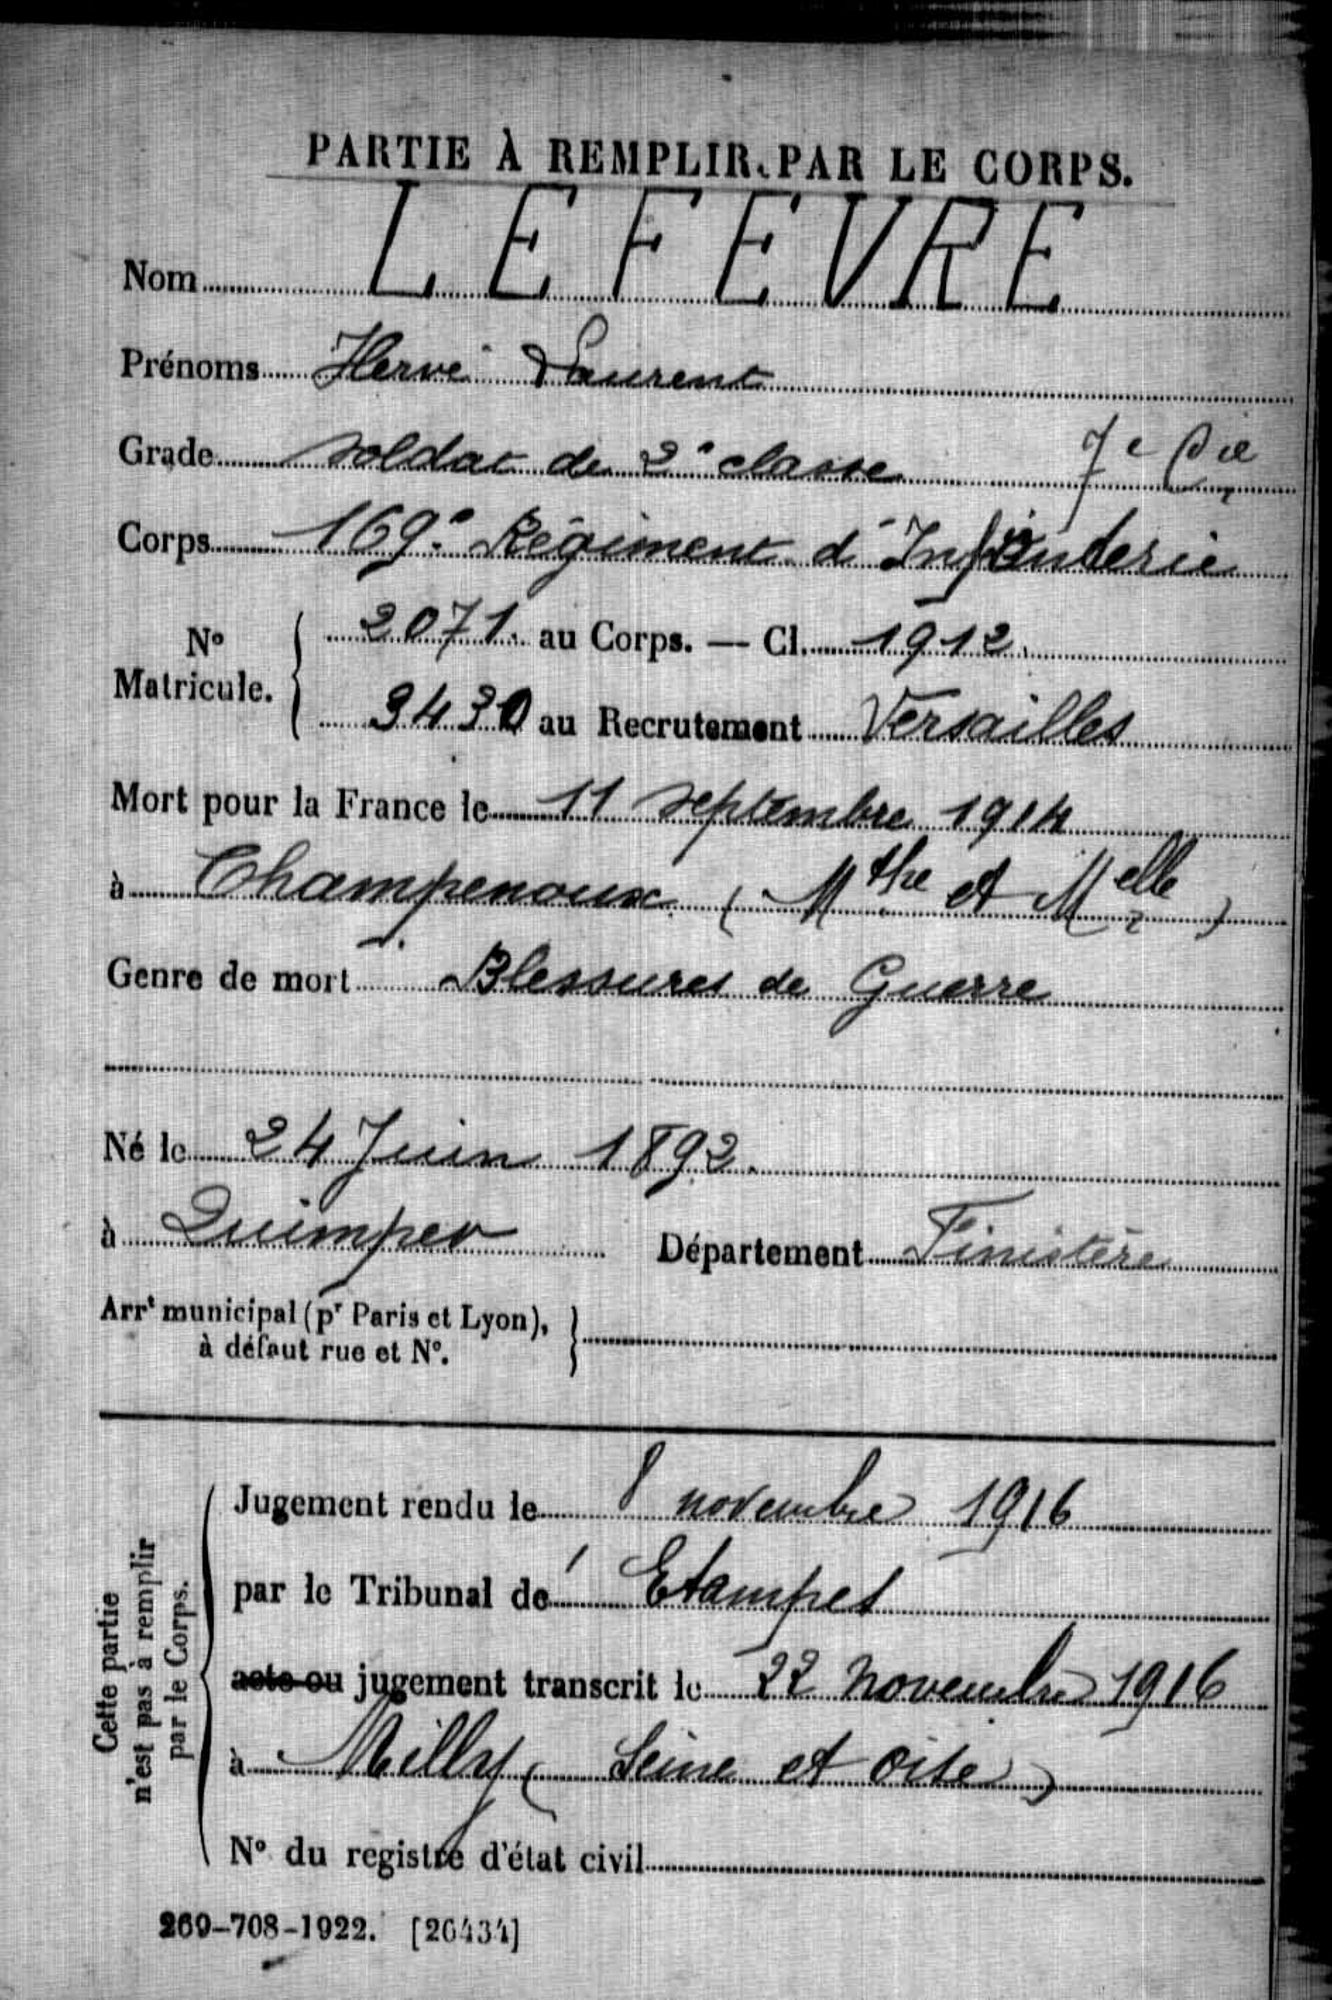 PARTIE À REMPLIR PAR LE CORPS.
Nom LEFEVRE
Prénoms Hervé Laurent
Grade soldat de 2e classe 7e Cie
Corps 169e Régiment d'Infanterie
No Matricule. 2071. au Corps. — Cl. 1912.
3430 au Recrutement Versailles
Mort pour la France le 11 septembre 1914
à Champenoux (Mthe et Melle)
Genre de mort Blessures de Guerre
Né le 24 Juin 1892.
à Quimper Département Finistère
Arrt municipal (pr Paris et Lyon),
à défaut rue et No.
Cette partie
n'est pas à remplir
par le Corps.
Jugement rendu le 8 novembre 1916
par le Tribunal de Etampes
acte ou jugement transcrit le 22 novembre 1916
à Milly (Seine et Oise)
No du registre d'état civil
269-708-1922. [26434]